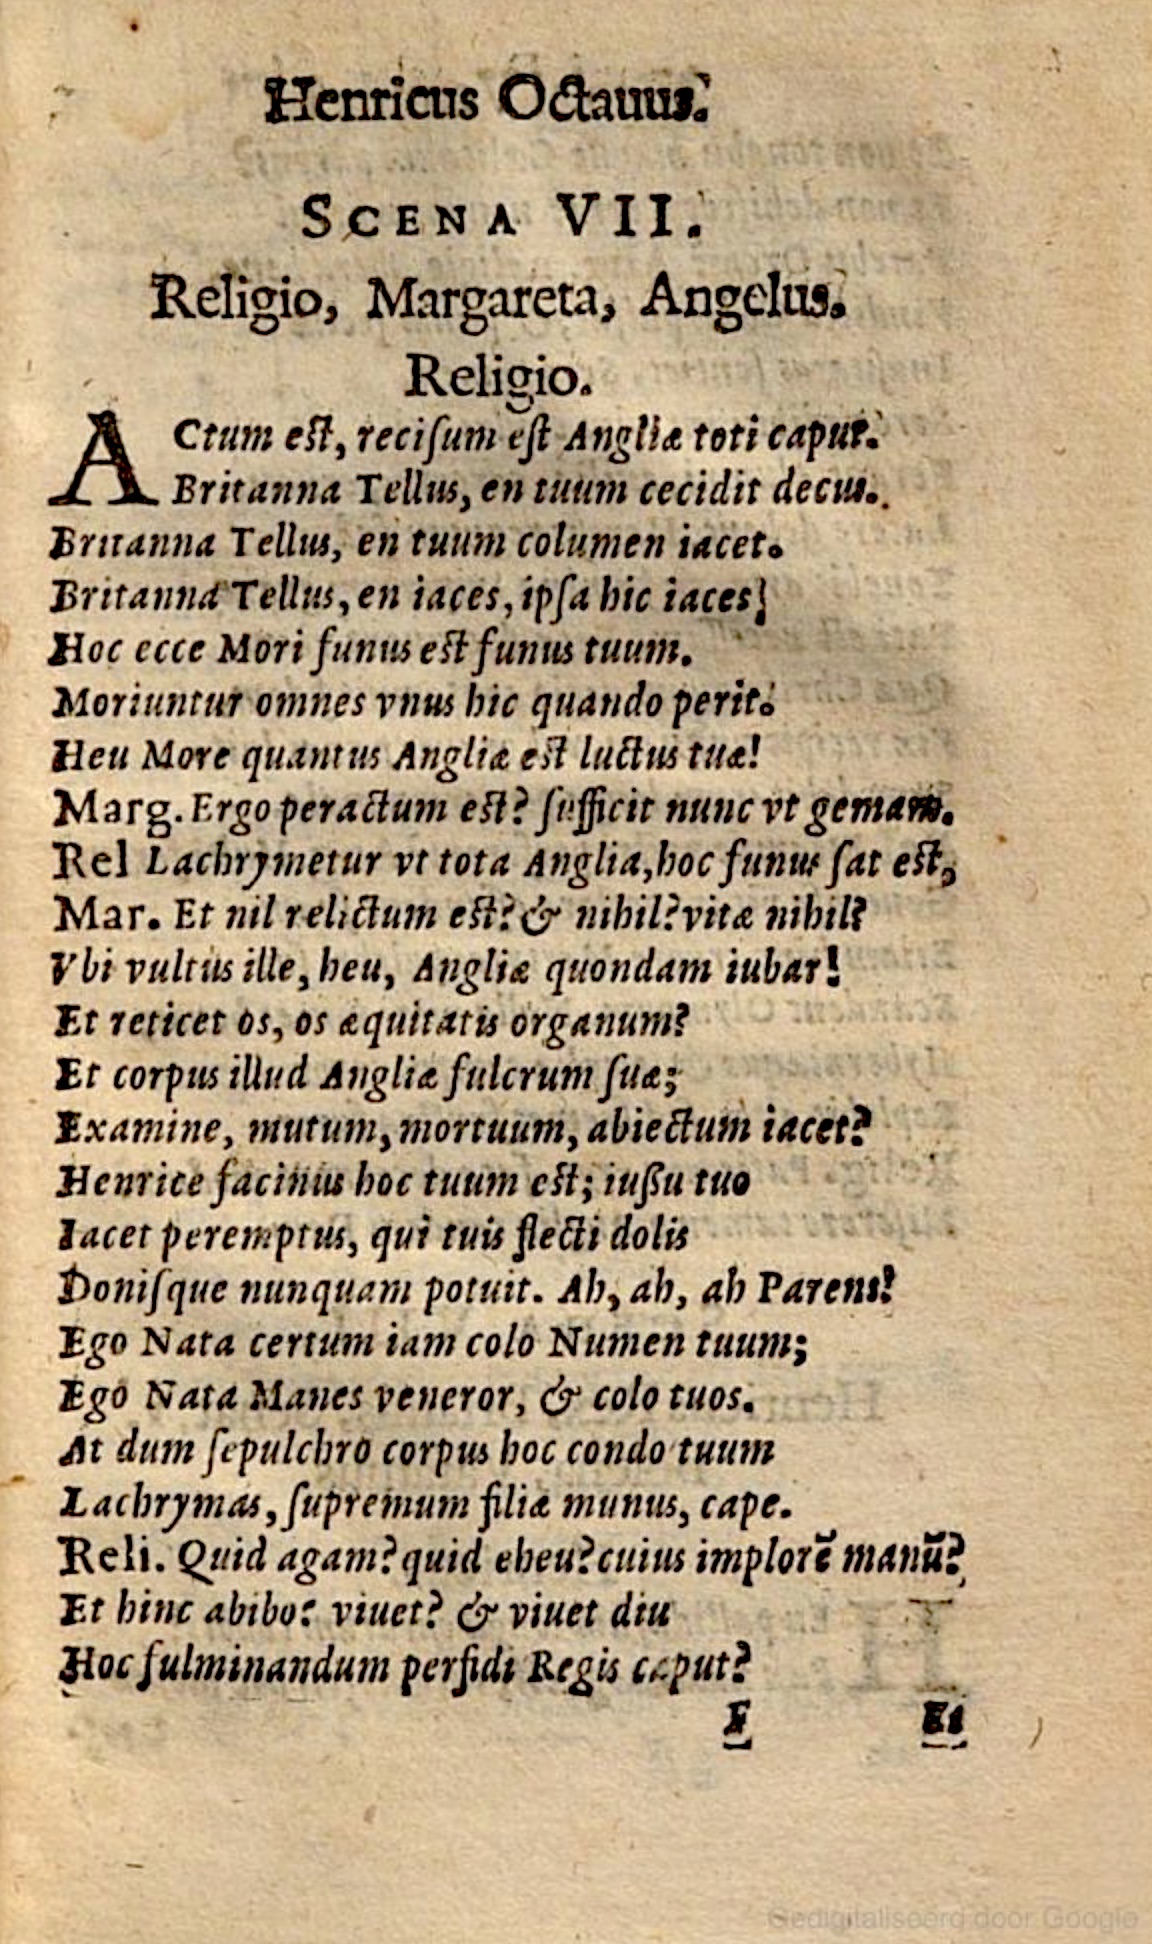 Henricus Octauus.
SCENA VII.
Religio, Margareta, Angelus.
Religio.
ACtum est, recisum est Angliæ toti caput.
Britanna Tellus, en tuum cecidit decus.
Britanna Tellus, en tuum columen iacet.
Britanna Tellus, en iaces, ipsa hic iaces;
Hoc ecce Mori funus est funus tuum.
Moriuntur omnes vnus hic quando perit.
Heu More quantus Angliæ est luctus tuæ!
Marg. Ergo peractum est? sufficit nunc vt gemam.
Rel Lachrymetur vt tota Anglia, hoc funus sat est,
Mar. Et nil relictum est? & nihil? vitæ nihil?
Vbi vultus ille, heu, Angliæ quondam iubar!
Et reticet os, os æquitatis organum?
Et corpus illud Angliæ fulcrum suæ;
Examine, mutum, mortuum, abiectum iacet?
Henrice facinus hoc tuum est; iußu tuo
Iacet peremptus, qui tuis flecti dolis
Donisque nunquam potuit. Ah, ah, ah Parens!
Ego Nata certum iam colo Numen tuum;
Ego Nata Manes veneror, & colo tuos.
At dum sepulchro corpus hoc condo tuum
Lachrymas, supremum filiæ munus, cape.
Reli. Quid agam? quid eheu? cuius implorē manū?
Et hinc abibo? viuet? & viuet diu
Hoc fulminandum perfidi Regis caput?
F Et
Gedigitaliseerd door Google